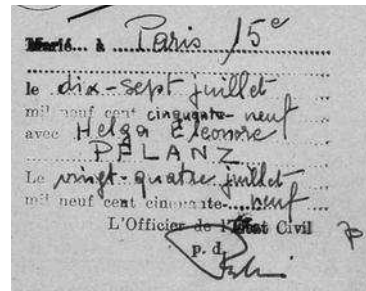 Marié... à ... Paris 15e
le dix-sept juillet
mil neuf cent cinquante-neuf
avec Helga Eleonore
PFLANZ
Le vingt-quatre juillet
mil neuf cent cinquante-....neuf
L'Officier de l'Etat Civil
p. d.